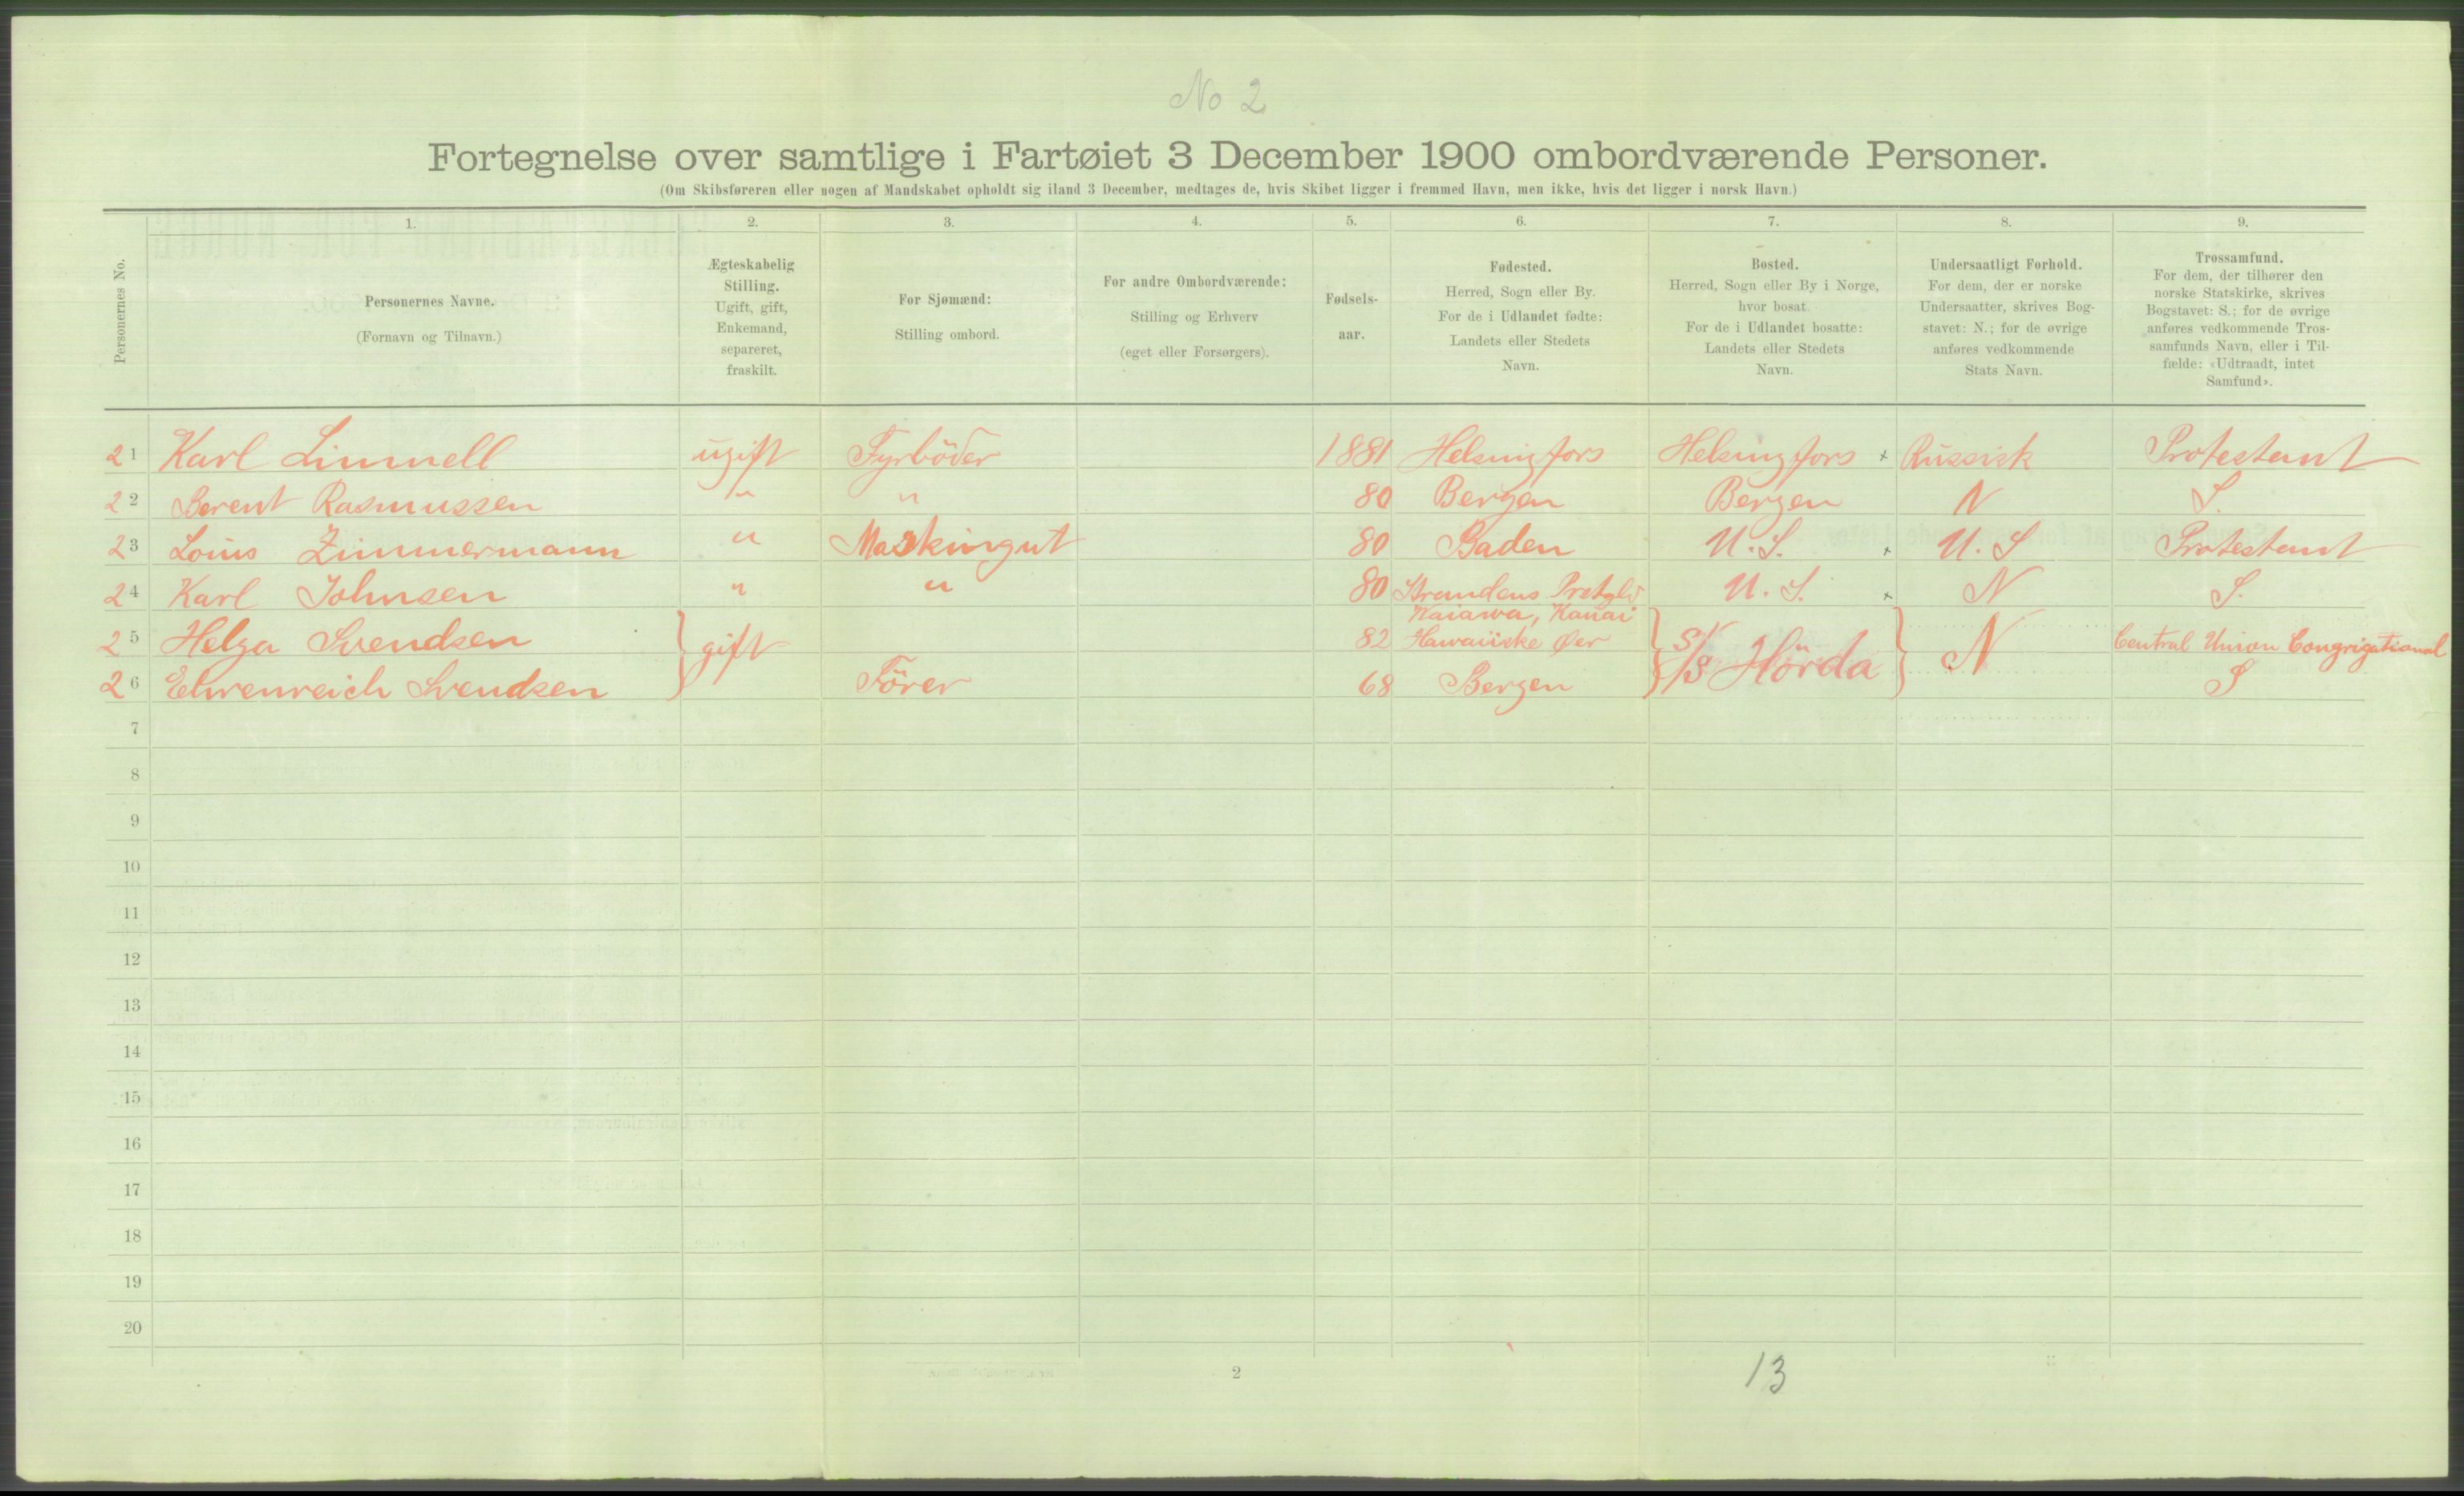 No 2
Fortegnelse over samtlige i Fartøiet 3 December 1900 ombordværende Personer.
(Om Skibsføreren eller nogen af Mandskabet opholdt sig iland 3 December, medtages de, hvis Skibet ligger i fremmed Havn, men ikke, hvis det ligger i norsk Havn.)
Personernes No.
1.
Personernes Navne.
(Fornavn og Tilnavn.)
2.
Ægteskabelig
Stilling.
Ugift, gift,
Enkemand,
separeret,
fraskilt.
3.
For Sjømænd:
Stilling ombord.
4.
For andre Ombordværende:
Stilling og Erhverv
(eget eller Forsørgers).
5.
Fødsels-
aar.
6.
Fødested.
Herred, Sogn eller By.
For de i Udlandet fødte:
Landets eller Stedets
Navn.
7.
Bosted.
Herred, Sogn eller By i Norge,
hvor bosat.
For de i Udlandet bosatte:
Landets eller Stedets
Navn.
8.
Undersaatligt Forhold.
For dem, der er norske
Undersaatter, skrives Bog-
stavet: N.; for de øvrige
anføres vedkommende
Stats Navn.
9.
Trossamfund.
For dem, der tilhører den
norske Statskirke, skrives
Bogstavet: S.; for de øvrige
anføres vedkommende Tros-
samfunds Navn, eller i Til-
fælde: «Udtraadt, intet
Samfund».
21 Karl Limnell ugift Fyrböder 1881 Helsingfors Helsingfors + Russisk Protestant
22 Berent Rasmussen " " 80 Bergen Bergen N S.
23 Louis Zimmermann " Maskingut 80 Baden U.S. + U.S Protestant
24 Karl Johnsen " " 80 Strandens U.S. + N S.
Kauai
25 Helga Svendsen } gift 82 Hawaiiske Øer } S/S Hörda } N Central Union Congrigational
26 Ehrenreich Svendsen Förer 68 Bergen S
7
8
9
10
11
12
13
14
15
16
17
18
19
20
2
13